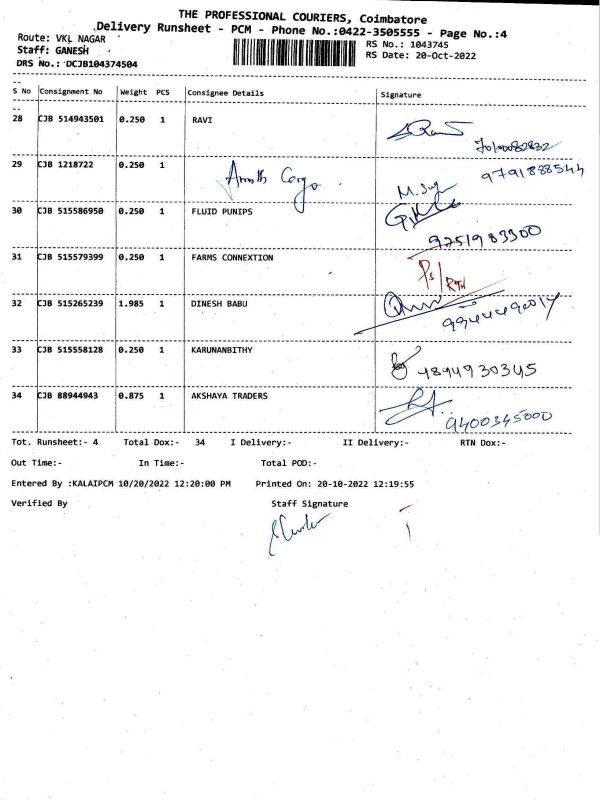 THE PROFESSIONAL COURIERS, Coimbatore
Delivery Runsheet - PCM - Phone No.:0422-3505555 - Page No.:4
Route: VKL NAGAR
RS No.: 1043745
Staff: GANESH
RS Date: 20-Oct-2022
DRS No.: DCJB104374504
S No Consignment No Weight PCS Consignee Details Signature
28 CJB 514943501 0.250 1 RAVI
29 CJB 1218722 0.250 1 Cargo 9791888544
30 CJB 515586950 0.250 1 FLUID PUNIPS
9251983300
31 CJB 515579399 0.250 1 FARMS CONNEXTION
32 CJB 515265239 1.985 1 DINESH BABU
33 CJB 515558128 0.250 1 KARUNANBITHY
4894930345
34 CJB 88944943 0.875 1 AKSHAYA TRADERS
9400345000
Tot. Runsheet:- 4 Total Dox:- 34 I Delivery:- II Delivery:- RTN Dox:-
Out Time:- In Time:- Total POD:-
Entered By :KALAIPCM 10/20/2022 12:20:00 PM Printed On: 20-10-2022 12:19:55
Verified By Staff Signature